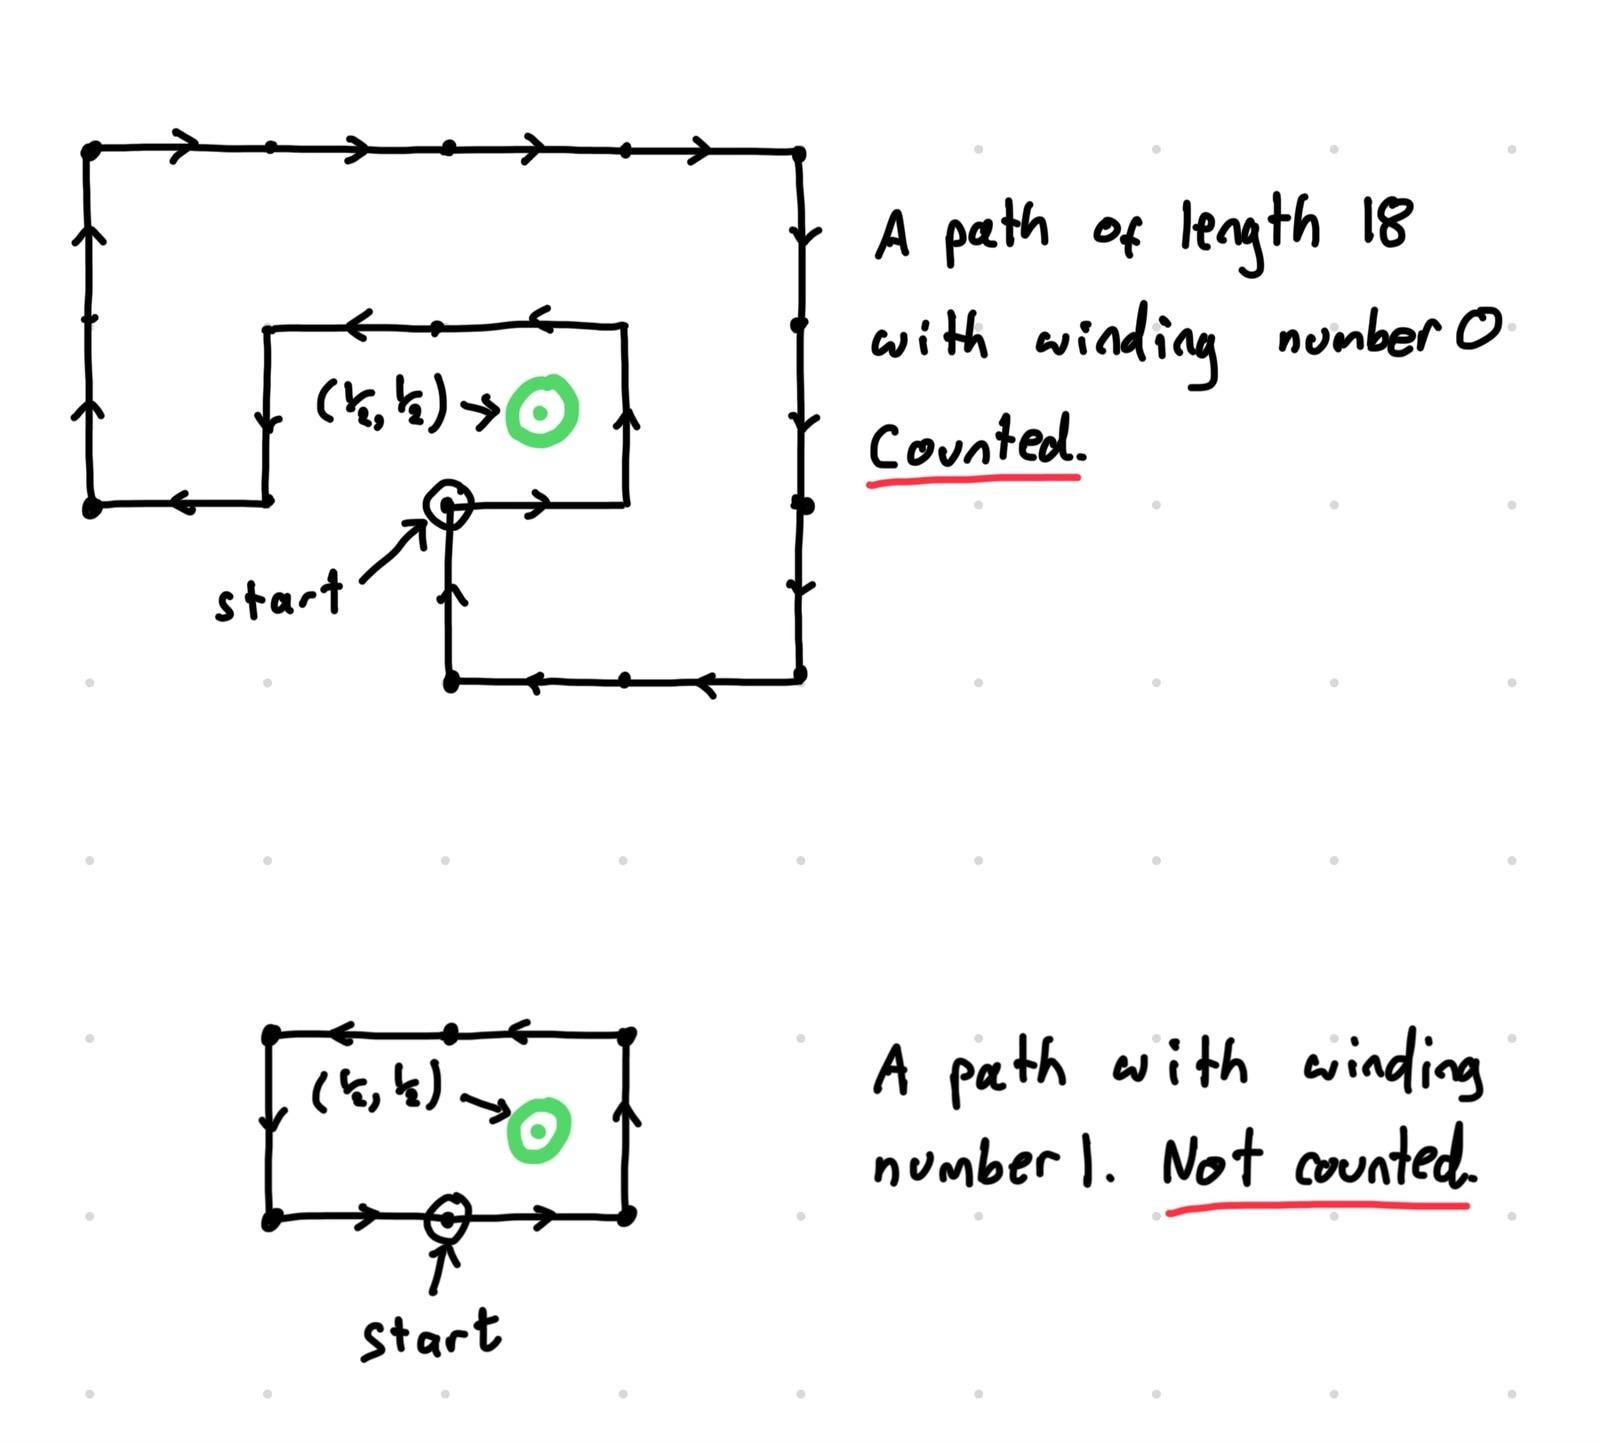 A path of length 18
with winding number 0
Counted.
(1/2, 1/2)
start
A path with winding
number 1. Not counted.
(1/2, 1/2)
start